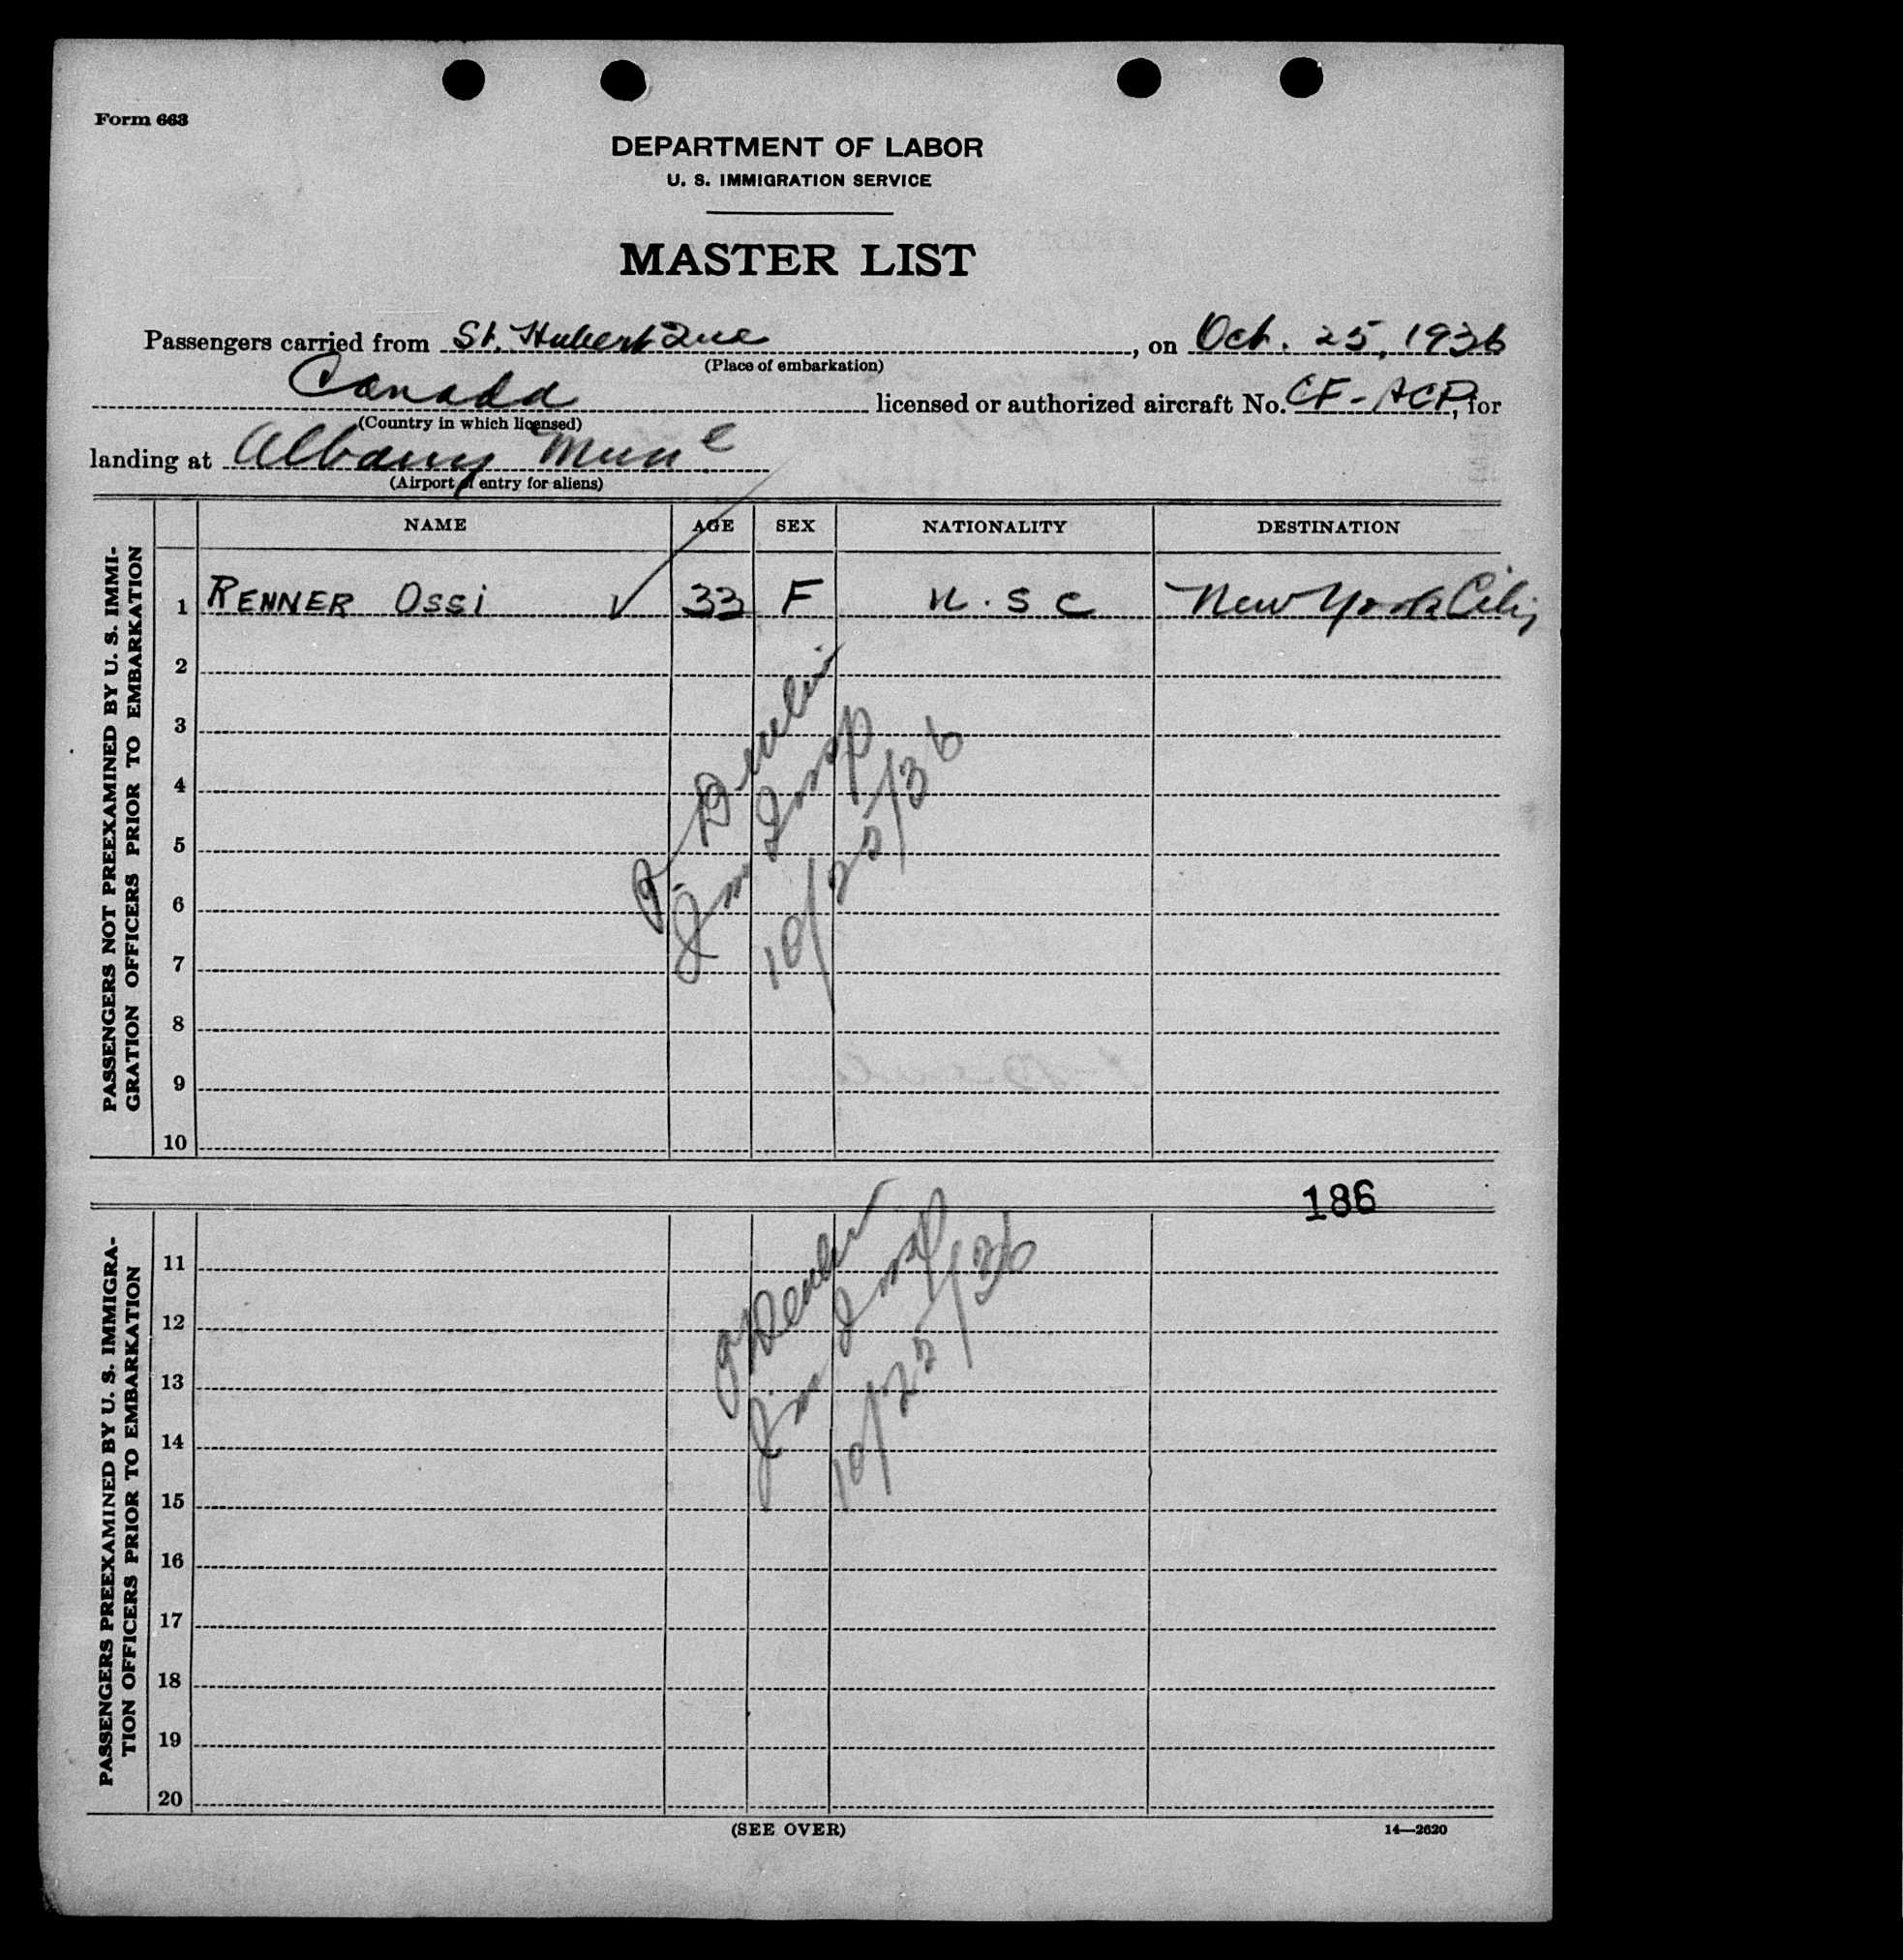 Form 663
DEPARTMENT OF LABOR
U. S. IMMIGRATION SERVICE
MASTER LIST
Passengers carried from St. Hubert Que, on Oct. 25, 1936
(Place of embarkation)
Canada licensed or authorized aircraft No. CF-ACP, for
(Country in which licensed)
landing at Albany
(Airport of entry for aliens)
NAME AGE SEX NATIONALITY DESTINATION
PASSENGERS NOT PREEXAMINED BY U. S. IMMI-
GRATION OFFICERS PRIOR TO EMBARKATION
1 RENNER OSSI ✓ 33 F U.S C New York City
2
3
4
5
6
7
8
9
10
Im Insp
10/25/36
186
PASSENGERS PREEXAMINED BY U. S. IMMIGRA-
TION OFFICERS PRIOR TO EMBARKATION
11
12
13
14
15
16
17
18
19
20
Im Insp
10/25/36
(SEE OVER)
14—2620